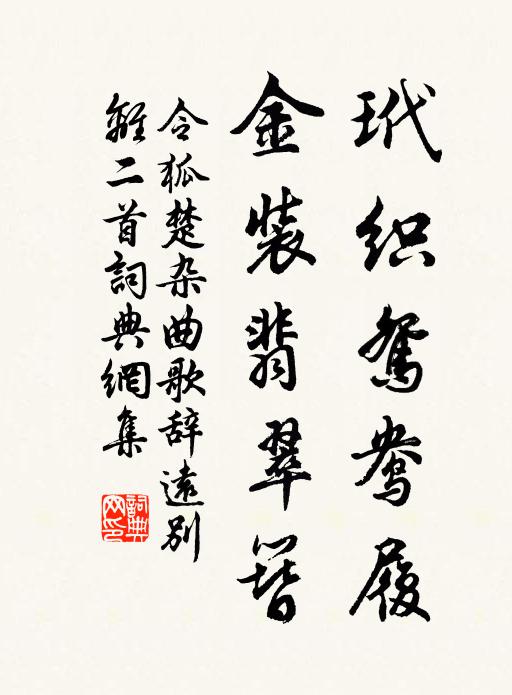 玳织鸳鸯履
金装翡翠簪
令狐楚杂曲歌辞遠别
離二首詞典網集
詞典
网印